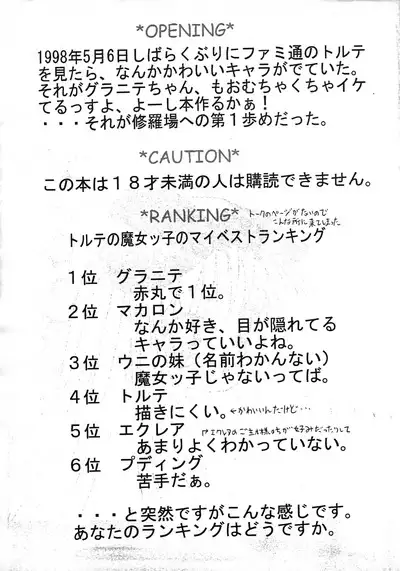 *OPENING*
1998年5月6日しばらくぶりにファミ通のトルテ
を見たら、なんかかわいいキャラがでていた。
それがグラニテちゃん、もおむちゃくちゃイケ
てるっすよ、よーし本作るかぁ！
・・・それが修羅場への第１歩めだった。
*CAUTION*
この本は１８才未満の人は購読できません。
*RANKING*
トークのページがないので
こんな所に来てしまった
トルテの魔女ッ子のマイベストランキング
１位 グラニテ
赤丸で１位。
２位 マカロン
なんか好き、目が隠れてる
キャラっていいよね。
３位 ウニの妹（名前わかんない）
魔女ッ子じゃないってば。
４位 トルテ
描きにくい。←かわいいんだけど…
５位 エクレア
エクレアのご主人様のが好みだったりして
あまりよくわかっていない。
６位 プディング
苦手だぁ。
・・・と突然ですがこんな感じです。
あなたのランキングはどうですか。